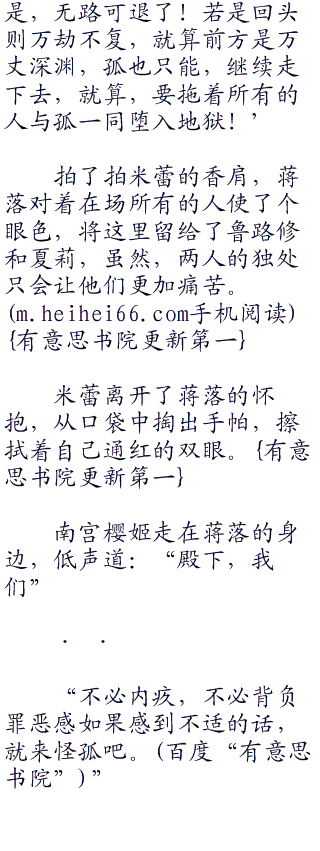 是，无路可退了！若是回头
则万劫不复，就算前方是万
丈深渊，孤也只能，继续走
下去，就算，要拖着所有的
人与孤一同堕入地狱！’
拍了拍米蕾的香肩，蒋
落对着在场所有的人使了个
眼色，将这里留给了鲁路修
和夏莉，虽然，两人的独处
只会让他们更加痛苦。
(m.heihei66.com手机阅读)
{有意思书院更新第一}
米蕾离开了蒋落的怀
抱，从口袋中掏出手帕，擦
拭着自己通红的双眼。{有意
思书院更新第一}
南宫樱姬走在蒋落的身
边，低声道：“殿下，我
们”
． ．
“不必内疚，不必背负
罪恶感如果感到不适的话，
就来怪孤吧。(百度“有意思
书院”)”